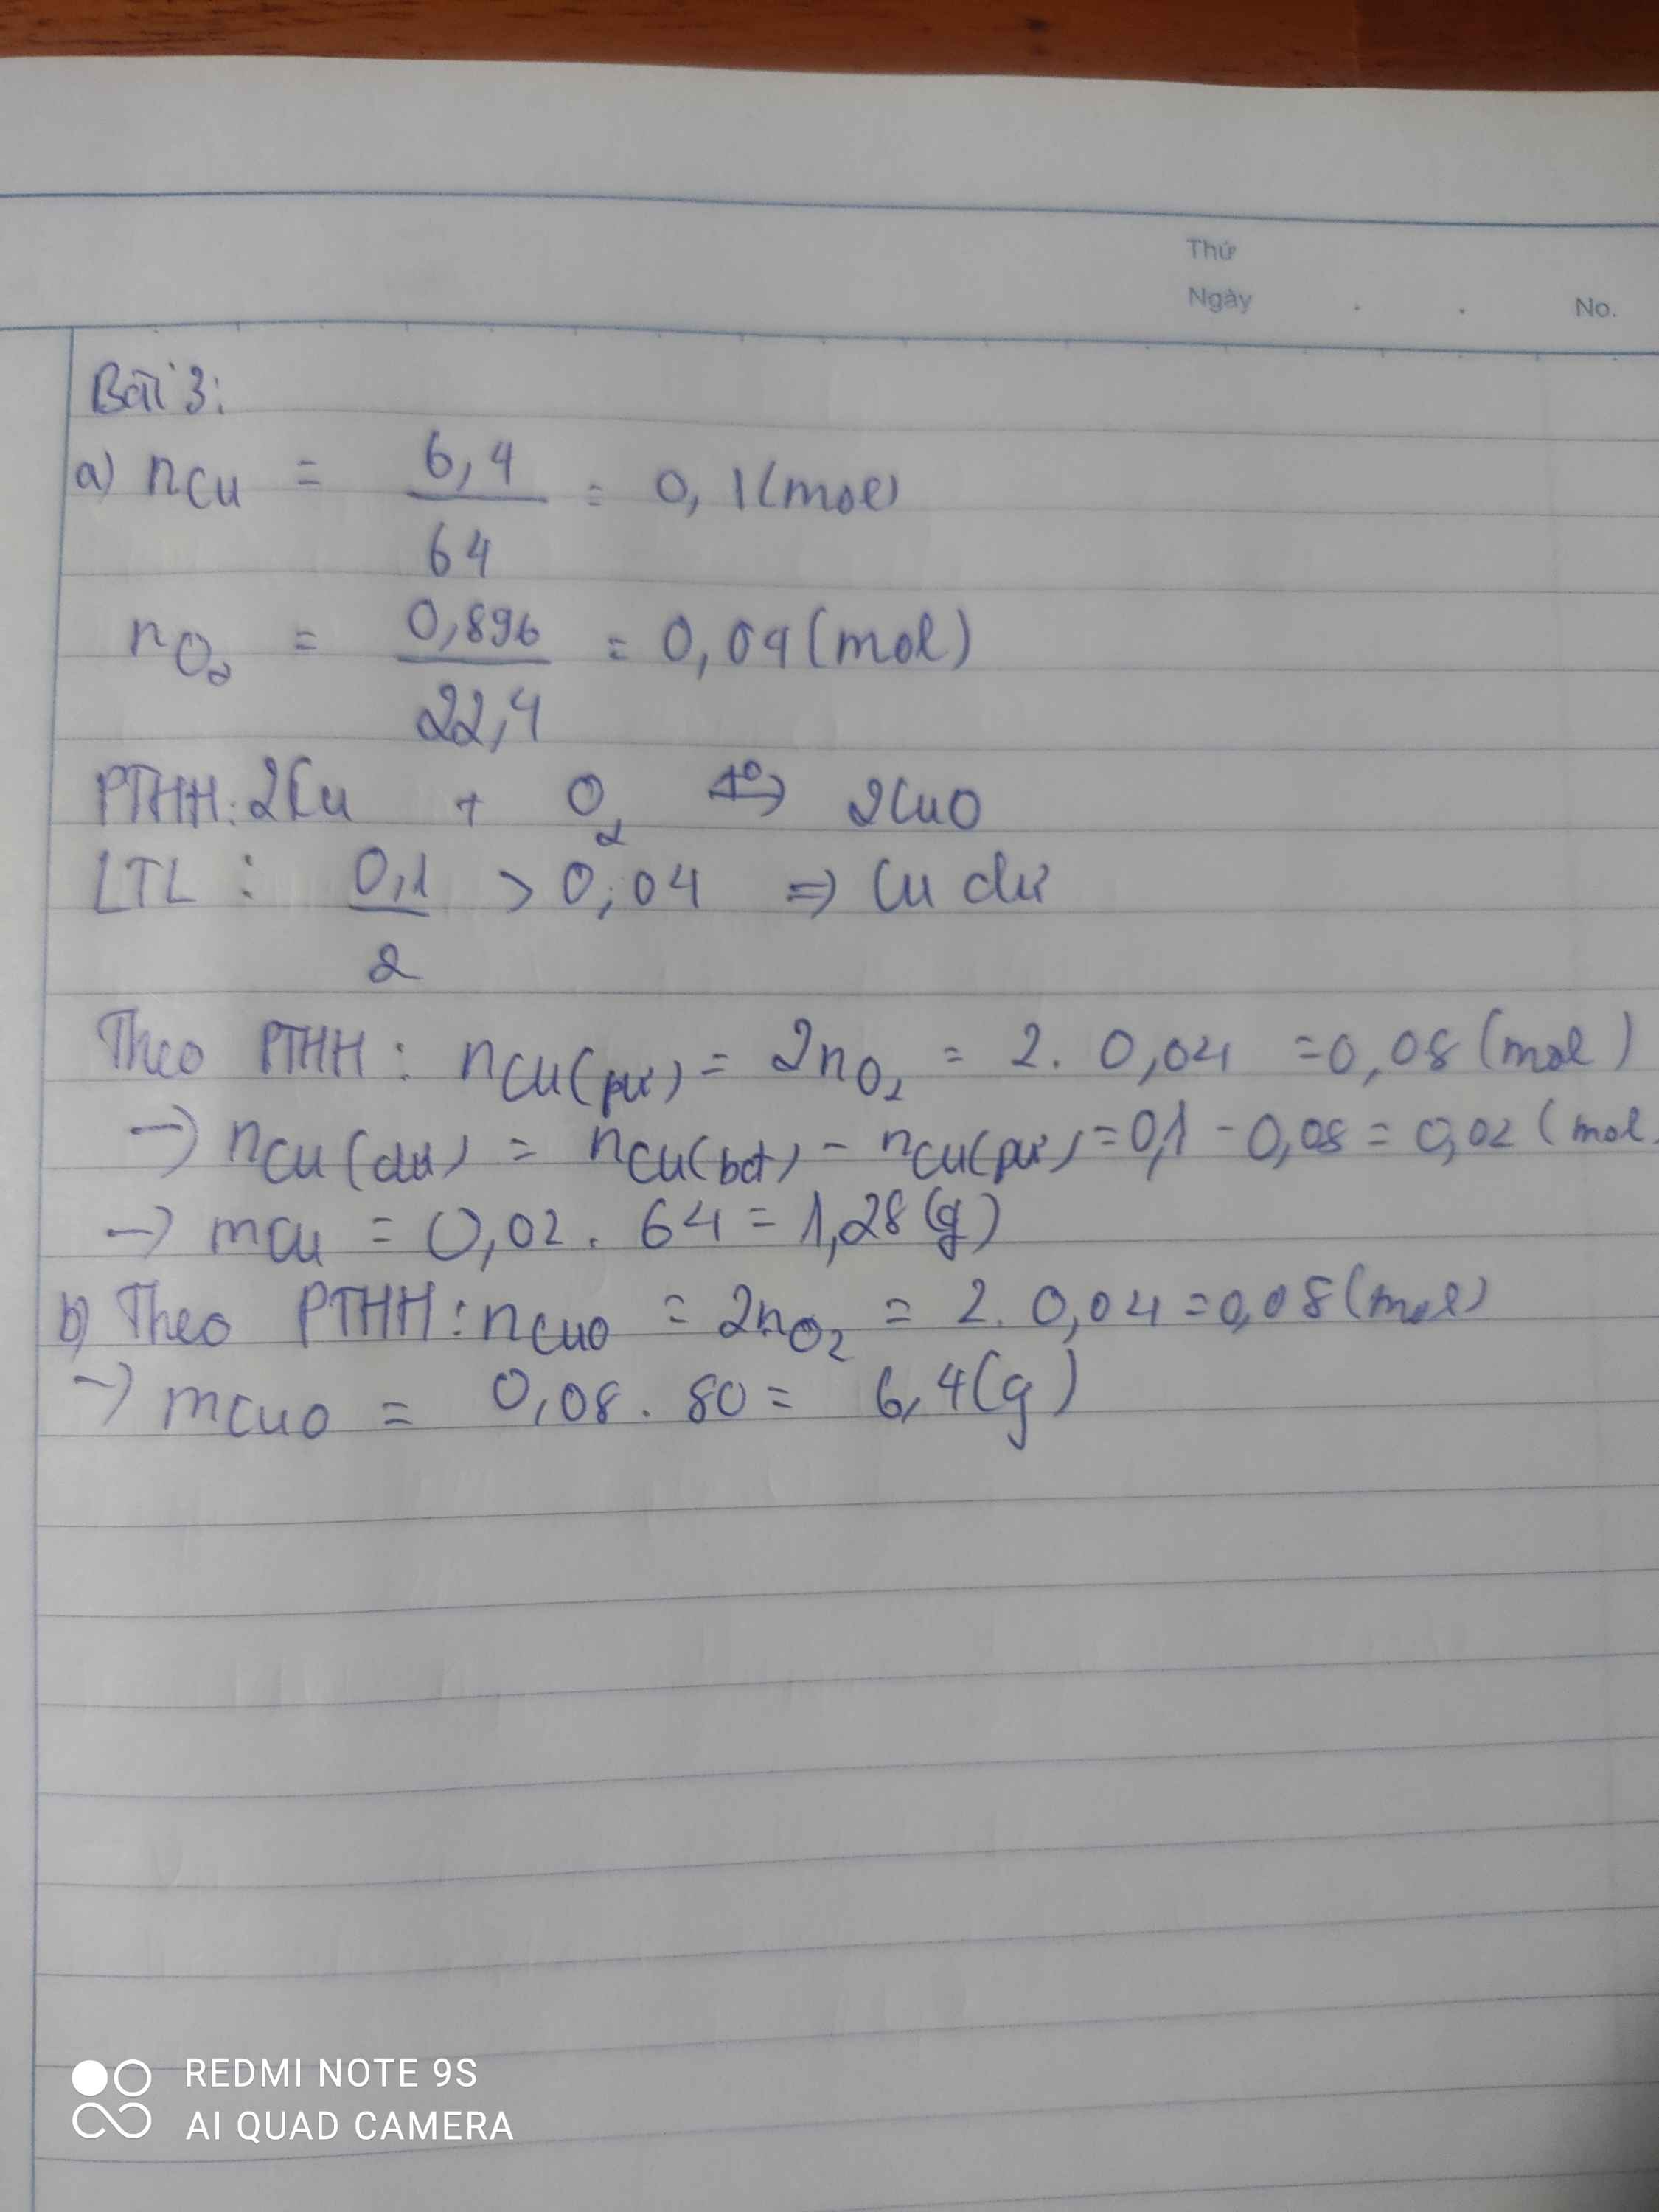 Thứ
Ngày . . No.
Bài 3:
a) nCu = 6,4 / 64 = 0,1 (mol)
nO2 = 0,896 / 22,4 = 0,04 (mol)
PTHH: 2Cu + O2 t°→ 2CuO
LTL: 0,1 / 2 > 0,04 => Cu dư
Theo PTHH: nCu(pư) = 2nO2 = 2. 0,04 = 0,08 (mol)
→ nCu(dư) = nCu(bđ) - nCu(pư) = 0,1 - 0,08 = 0,02 (mol)
→ mCu = 0,02 . 64 = 1,28 (g)
b) Theo PTHH: nCuO = 2nO2 = 2. 0,04 = 0,08 (mol)
→ mCuO = 0,08 . 80 = 6,4 (g)
REDMI NOTE 9S
AI QUAD CAMERA